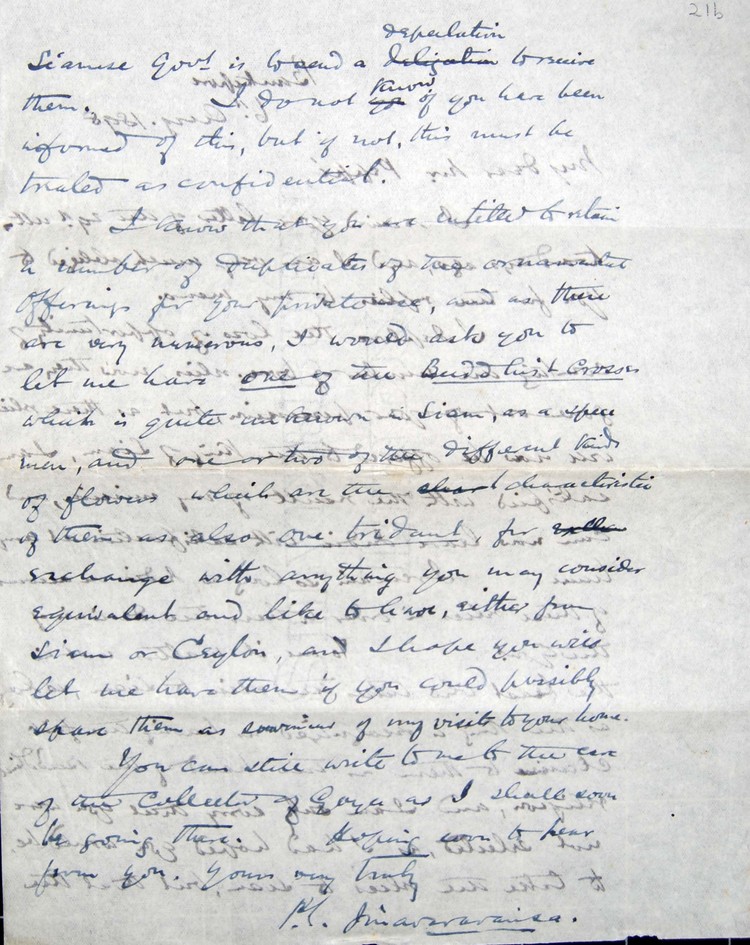 21b
deputation
Siamese Govt. is to send a deligation to receive
know
them. I do not yo if you have been
informed of this, but if not, this must be
treated as confidential.
I know that you are entitled to retain
a number of duplicates of the ornamental
offerings for your private use, and as these
are very numerous, I would ask you to
let me have one of the Buddhist Crosses
which is quite unknown in Siam, as a speci
men, and one or two of the different kinds
of flowers which are the characteristic
of them as also one tridant, for
exchange with anything you may consider
equivalent and like to have, either from
Siam or Ceylon, and I hope you will
let me have them if you could possibly
spare them as souvenir of my visit to your home.
You can still write to me to the care
of the Collector of Gaya as I shall soon
be going there. Hoping soon to hear
from you. Yours very truly
P.C. Jinavaravansa.